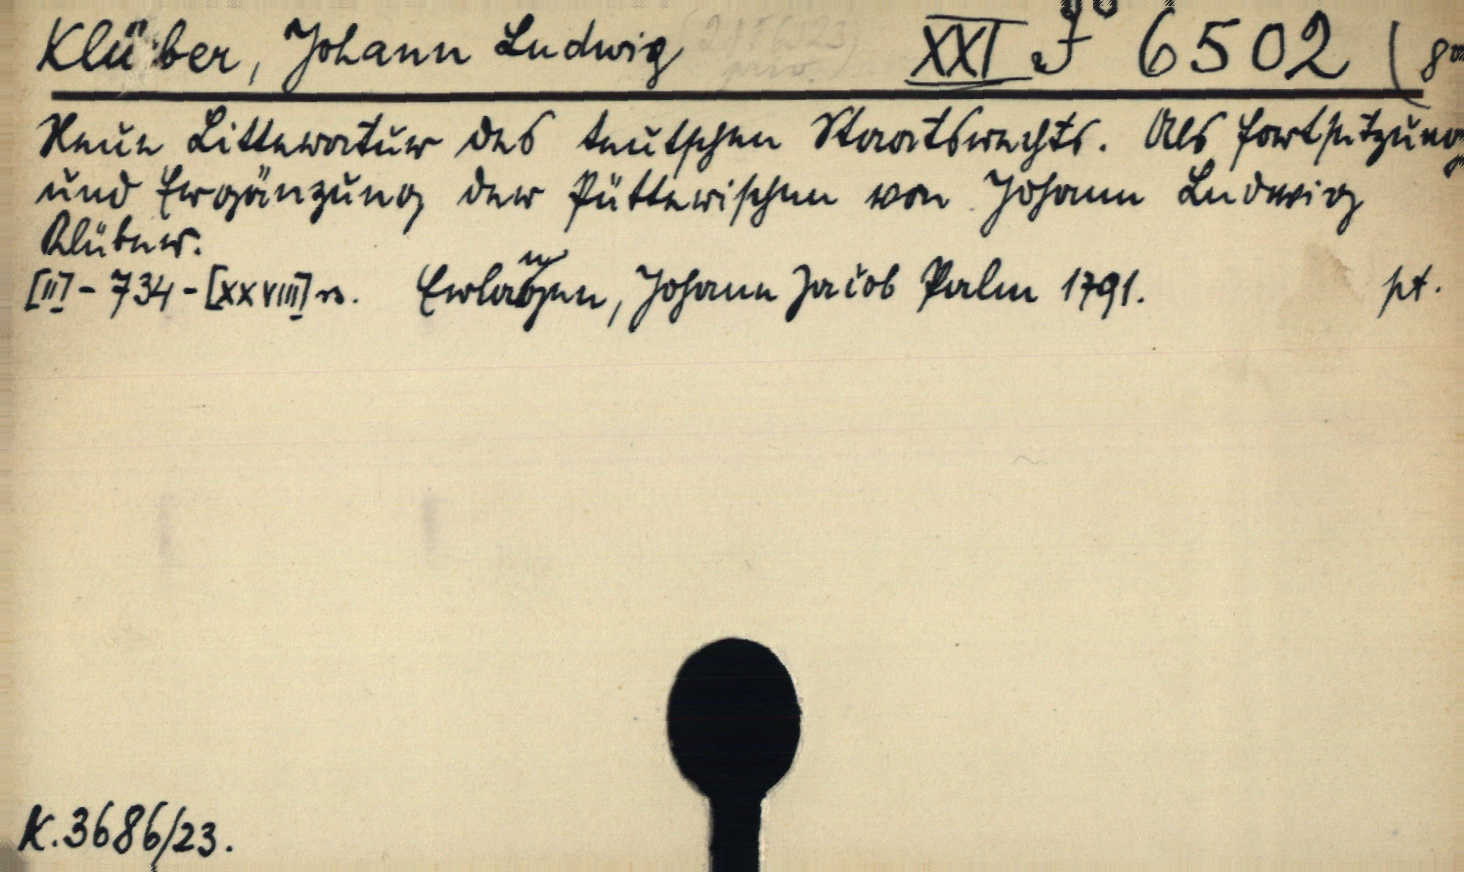 Klüber, Johann Ludwig XXI J 6502 (8°
Neue Litteratur des teutschen Staatsrechts. Als Fortsetzung
und Ergänzung der Pütterischen von Johann Ludwig
Klüber.
[II] - 734 - [XXVIII] s. Erlangen, Johann Jacob Palm 1791. pt.
K. 3686/23.